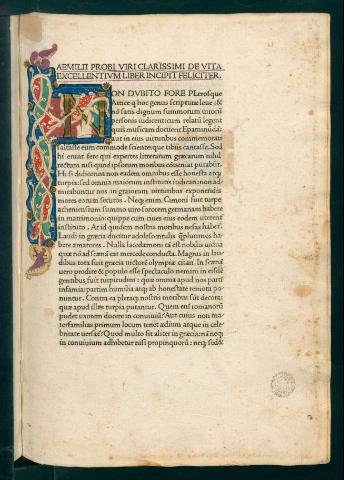 AEMILII PROBI VIRI CLARISSIMI DE VITA
EXCELLENTIVM LIBER INCIPIT FELICITER.
NON DVBITO FORE PLerosque
Attice q hoc genus scripturæ leue: &
nõ satis dignum summorum uirorũ
personis iudicent: cum relatũ legent
quis musicam docuerit Epaminũdã:
aut in eius uirtutibus commemorari
saltasse eum commode: scienterque tibiis cantasse. Sed
hi erunt fere qui expertes litterarum græcarum nihil
rectum nisi quod ipsorum moribus cõueniat putabũt.
Hi si didicerint non eadem omnibus esse honesta atq;
turpia: sed omnia maiorum institutis iudicari: non ad-
mirabuntur nos in graiorum uirtutibus exponendis
mores eorum secutos. Neq; enim Cimoni fuit turpe
atheniensium summo uiro sororem germanam habere
in matrimonio: quippe cum ciues eius eodem uterentur
instituto. At id quidem nostris moribus nefas habet̃.
Laudi in græcia ducitur adolescentulis q̃plurimos ha-
bere amatores. Nulla lacedæmoni tã est nobilis uidua
quæ nõ ad scenã eat mercede conducta. Magnis in lau-
dibus tota fuit græcia uictorẽ olympiæ citari. In scenã
uero prodire & populo esse spectaculo nemini in eisdẽ
gentibus fuit turpitudini: quæ omnia apud nos partim
infamia: partim humilia: atq; ab honestate remota po-
nuntur. Contra ea pleraq; nostris moribus sũt decora:
quæ apud illos turpia putantur. Quem eni romanorũ
pudet uxorem ducere in conuiuiũ? Aut cuius non ma-
terfamilias primum locum tenet ædium atque in cele-
britate uersat̃? Quod multo fit aliter in græcia: nã neq;
in conuiuium adhibetur nisi propinquorũ: neq; sedet